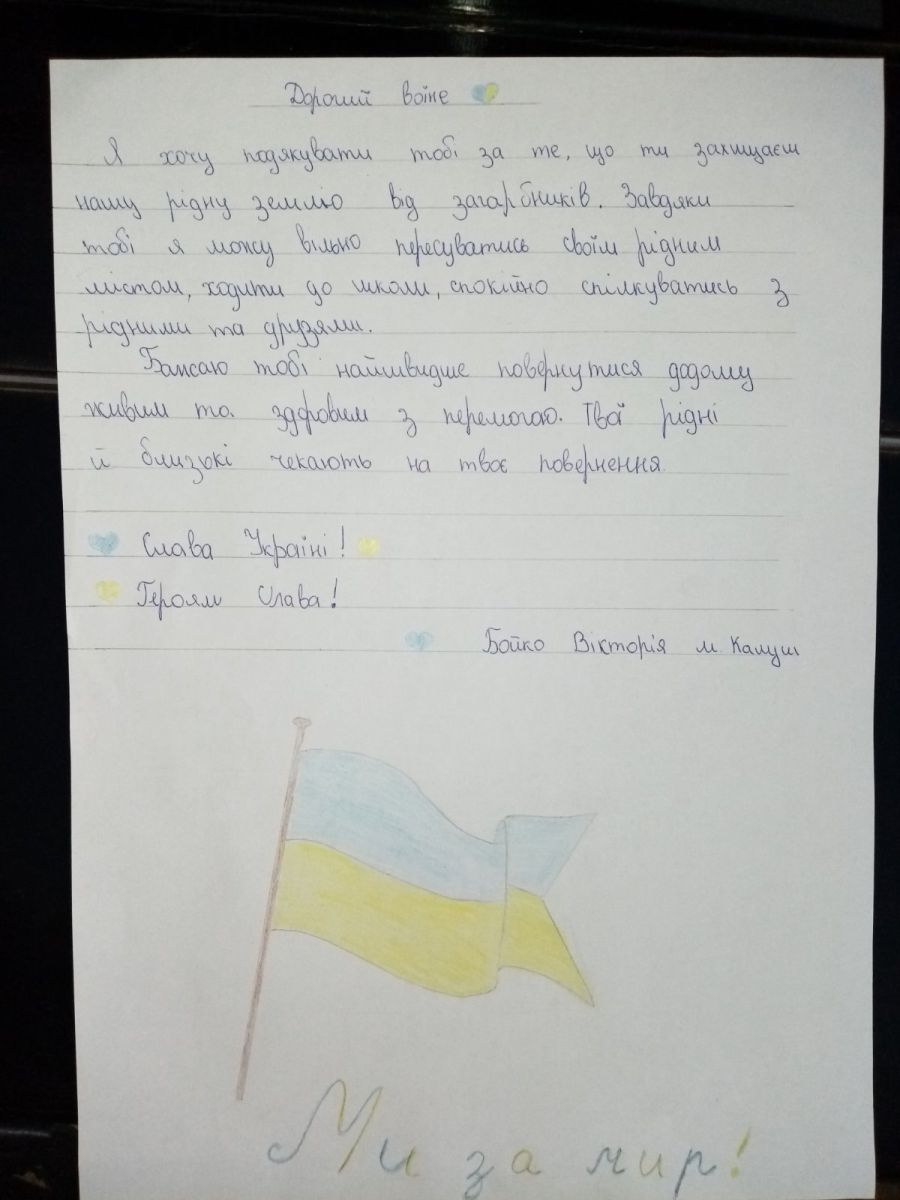 Дорогий воїне
Я хочу подякувати тобі за те, що ти захищаєш
нашу рідну землю від загарбників. Завдяки
тобі я можу вільно пересуватись своїм рідним
містом, ходити до школи, спокійно спілкуватись з
рідними та друзями.
Бажаю тобі найшвидше повернутися додому
живим та здоровим з перемогою. Твої рідні
й близькі чекають на твоє повернення.
Слава Україні!
Героям Слава!
Бойко Вікторія м. Калуш
Ми за мир!